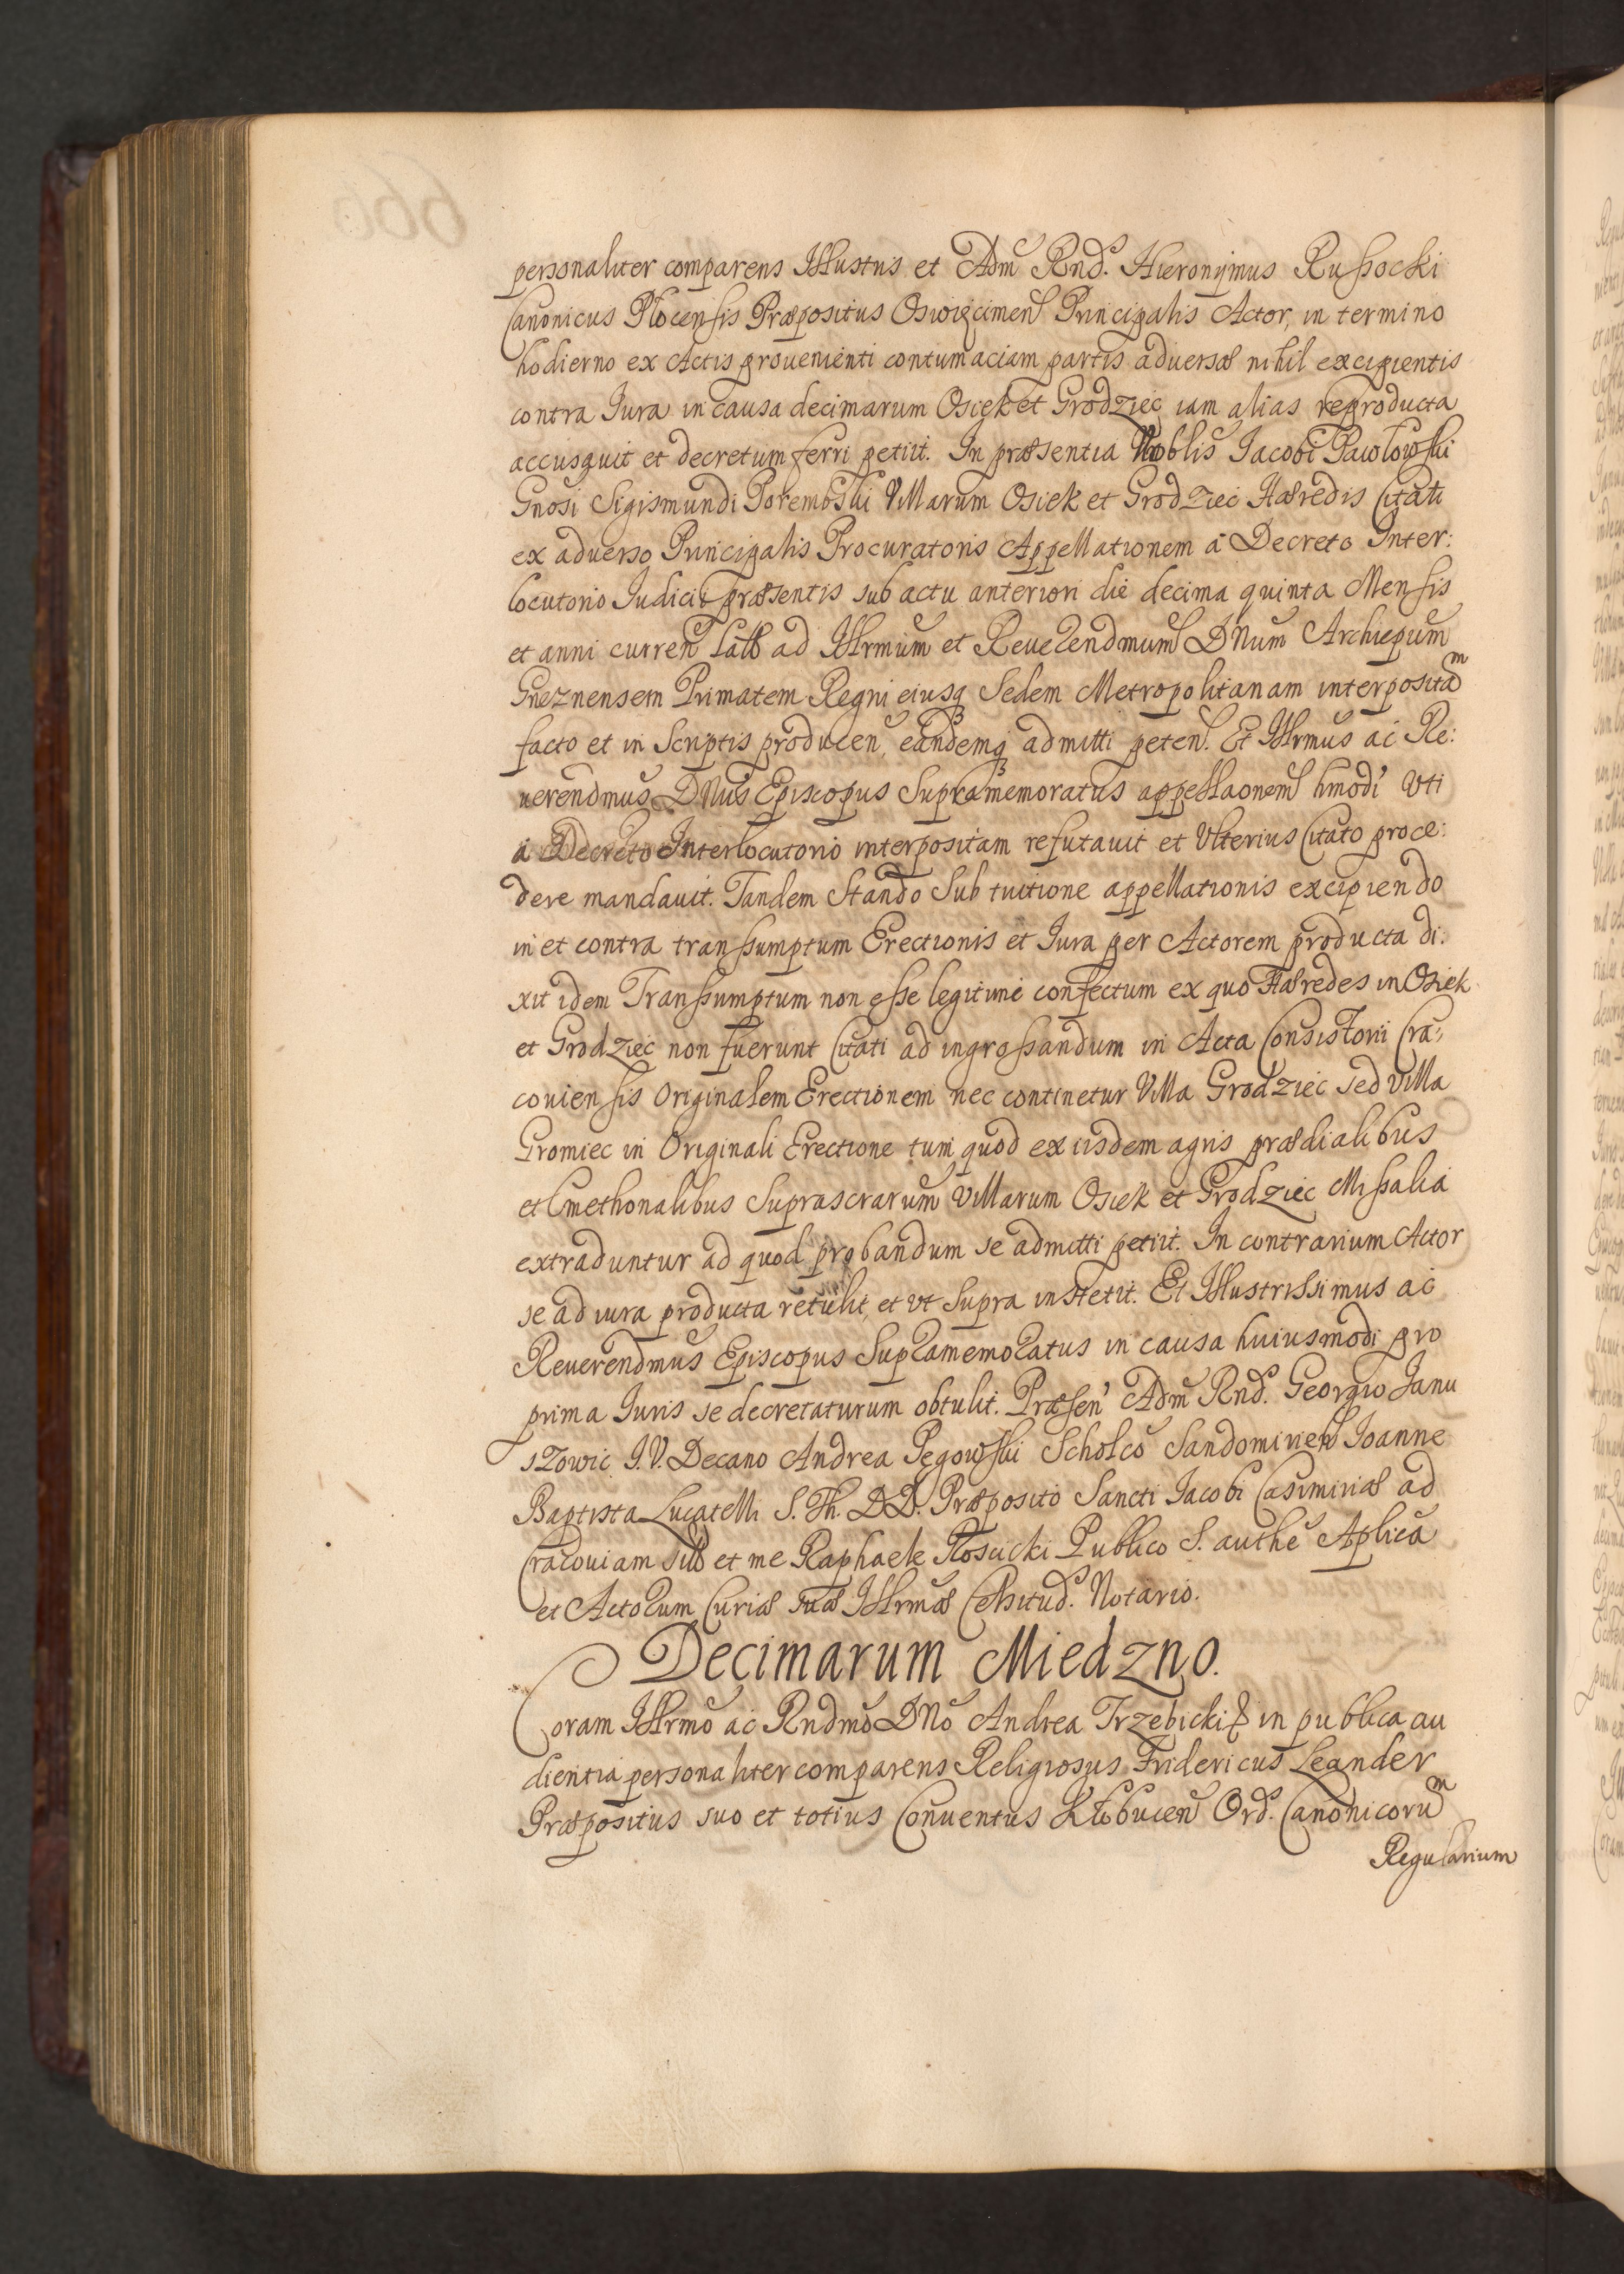 personaliter comparens Illustris et Adm̃ Rnd. Hieronymus Rußocki
Canonicus Plocensis Præpositus Oswięcimen̄ Principalis Actor, in termino
hodierno ex Actis prouenienti contumaciam partis aduersæ nihil excipientis
contra Jura in causa decimarum Osiek et Grodziec iam alias reproducta
accusauit et decretum ferri petiit. In præsentia Noblis Jacobi Pawłowski
Gnosi Sigismundi Porembski Villarum Osiek et Grodziec Hæredis Citati
ex aduerso Principalis Procuratoris Appellationem à Decreto Inter:
locutorio Judicii præsentis sub actu anteriori die decima quinta Mensis
et anni curren̄ lato ad Illrmum et Reuerendmum Dnum Archiepum
Gneznensem Primatem Regni eiusq₃ Sedem Metropolitanam interpositam
facto et in Scriptis producen̄, eandemq₃ admitti peten̄. Et Illrmus ac Re:
uerendmus Dnus Episcopus Supramemoratus appellaonem hmodi Uti
à Decreto Interlocutorio interpositam refutauit et Ulterius Citato proce:
dere mandauit. Tandem Stando Sub tuitione appellationis excipiendo
in et contra transsumptum Erectionis et Jura per Actorem producta di:
xit idem Transsumptum non esse legitime confectum ex quo Hæredes in Osiek
et Grodziec non fuerunt Citati ad ingrossandum in Acta Consistorii Cra:
couiensis Originalem Erectionem nec continetur Villa Grodziec sed Villa
Gromiec in Originali Erectione tum quod ex iisdem agris prædialibus
et Cmethonalibus Suprascrarum Villarum Osiek et Grodziec Missalia
extraduntur ad quod probandum se admitti petiit. In contrarium Actor
se ad iura producta retulit, et ut Supra institit. Et Illustrissimus ac
Reuerendmus Episcopus Supramemoratus in causa huiusmodi pro
prima Juris se decretaturum obtulit. Præsen̄ Adm̃ Rnd. Georgio Janu
szowic J.V. Decano Andrea Pęgowski Scholco Sandomirien̄ Joanne
Baptista Lucatelli S. Th. DD. Præposito Sancti Jacobi Casimiriæ ad
Cracouiam sito et me Raphaele Rosucki Publico S. authe Aplica
et Actorum Curiæ suæ Illrmæ Celsitud. Notario.
Decimarum Miedzno.
Coram Illrmo ac Rndmo Dno Andrea Trzebicki in publica au
dientia personaliter comparens Religiosus Fridericus Leander
Præpositus suo et totius Conuentus Kłobucen̄ Ord. Canonicorum
Regularium